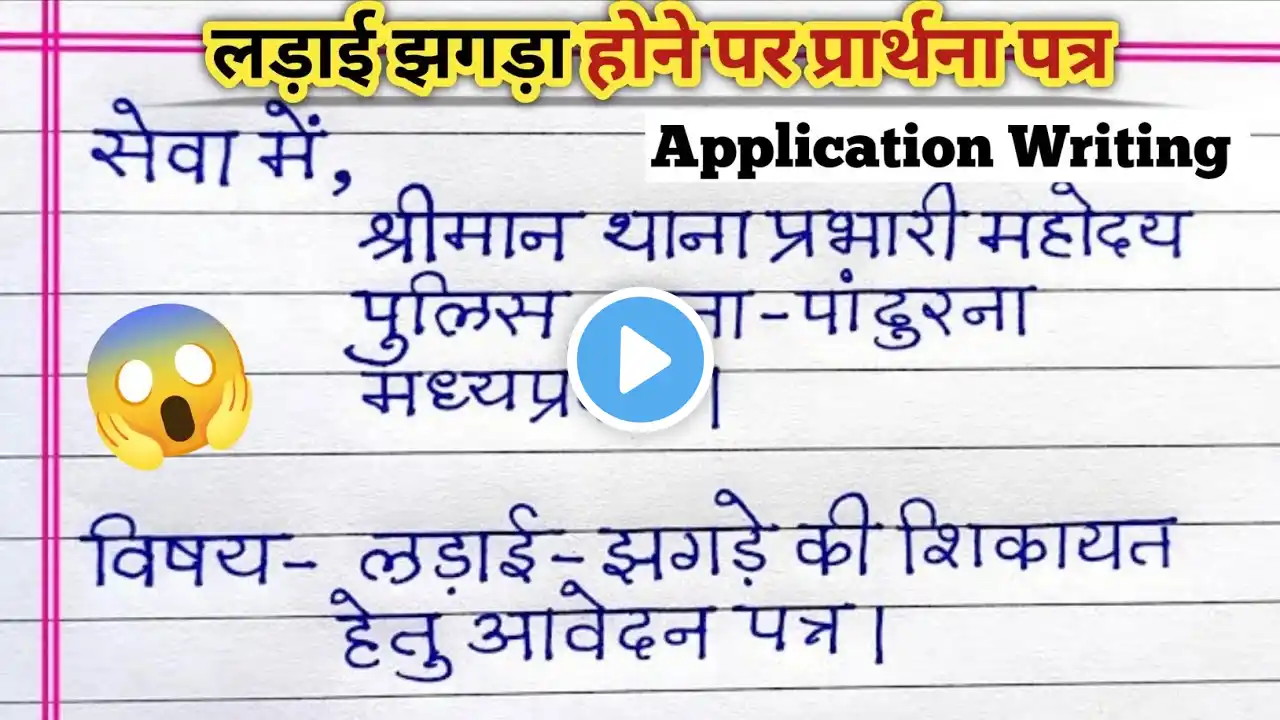 लड़ाई झगड़ा होने पर प्रार्थना पत्र
Application Writing
सेवा में,
श्रीमान थाना प्रभारी महोदय
पुलिस -पांढुरना
विषय- लड़ाई-झगड़े की शिकायत
हेतु आवेदन पत्र।